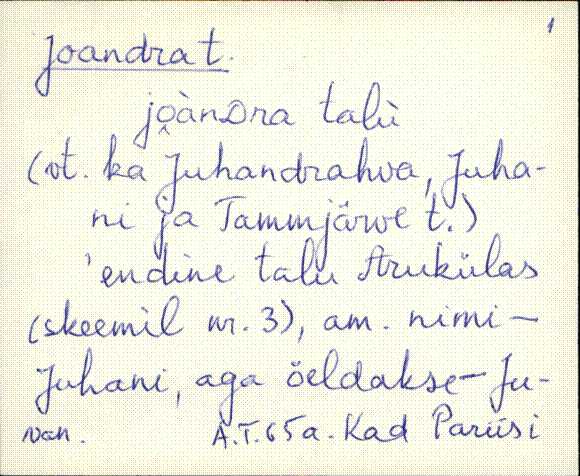 1
Joandra t.
jo̭ànDra talù
(vt. ka Juhandrahva, Juha-
ni ja Tammjärve t.)
'endine talu Arukülas
(skeemil nr. 3), am. nimi –
Juhani, aga öeldakse – Ju-
van. A.T. 65 a. Kad Pariisi